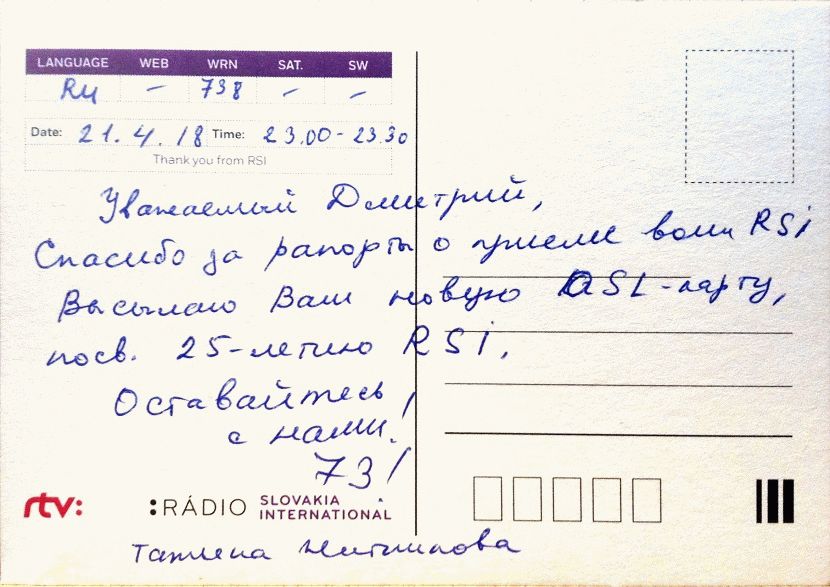 LANGUAGE WEB WRN SAT. SW
RU – 738 – –
Date: 21.4.18 Time: 23.00-23.30
Thank you from RSI
Уважаемый Дмитрий,
Спасибо за рапорты о приеме волн RSI
Высылаю Вам новую QSL-карту,
посв. 25-летию RSI.
Оставайтесь
с нами!
73!
rtv: :RÁDIO SLOVAKIA
INTERNATIONAL
Татьяна